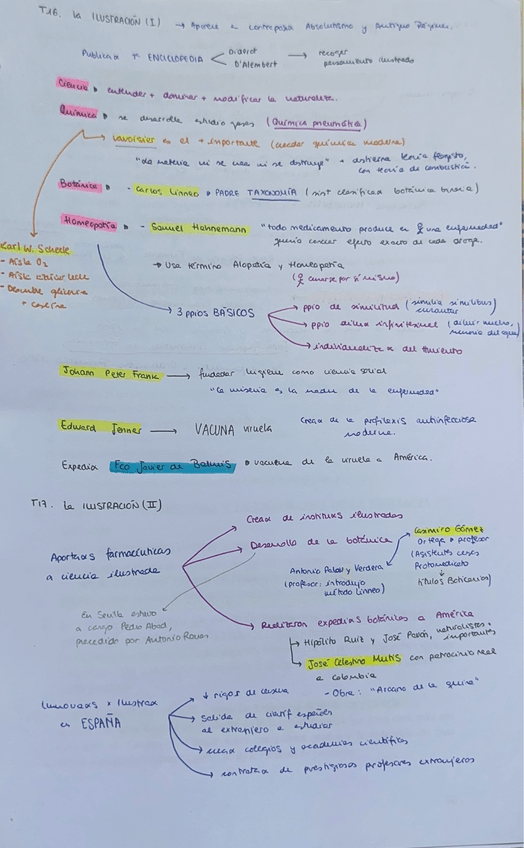 T16. La ILUSTRACIÓN (I) → Aparece a contraposic Absolutismo y Antiguo Régimen.
Publicac 1ª ENCICLOPEDIA < Diderot D'Alembert → recoger pensamiento ilustrado
Ciencia entender + dominar + modificar la naturaleza.
Química se desarrolla estudio gases (Química pneumática)
Lavoisier es el + importante (creador química moderna)
"la materia ni se crea ni se destruye" → destierra teoría flogisto, con teoría de combustión.
Botánica → - Carlos Linneo PADRE TAXONOMÍA (sist clasificac botánica binaria)
Homeopatía → - Samuel Hahnemann "todo medicamento produce en una enfermedad"
quería conocer efecto exacto de cada droga.
Karl W. Scheele
- Aisla O2
- Aisla láctico leche
- Descubre glicerina
+ caseína
→ Usa término Alopatía y Homeopatía
( curarse por sí mismo)
→ 3 ppios BÁSICOS
→ ppio de similitud (similia similibus curantur)
→ ppio diluc infinitesimal (diluir mucho, memoria del agua)
→ individualizac del tratamiento
Johann Peter Frank → fundador higiene como ciencia social
"la miseria es la madre de la enfermedad"
Edward Jenner → VACUNA viruela
Creac de la profilaxis antiinfecciosa moderna.
Expedic Fco Javier de Balmis vacuna de la viruela a América.
T17. La ILUSTRACIÓN (II)
Aportacs farmacéuticas a ciencia ilustrada
→ Creac de instituts ilustradas
→ Desarrollo de la botánica
Casimiro Gómez Ortega profesor
(Asistents cursos Protomedicato
↓
títulos Boticarios)
Antonio Palau y Verdera
(profesor: introdujo método Linneo)
En Sevilla estuvo
a cargo Pedro Abad,
precedido por Antonio Ramos
→ Realizaron expedics botánicas a América
↳ Hipólito Ruiz y José Pavón, naturalistas + importantes
↳ José Celestino Mutis con patrocinio real
a Colombia
- Obra: "Arcano de la quina"
Innovacs x Ilustrac
en ESPAÑA
→ ↓ rigor de censura
→ Salida de científ españoles
al extranjero a estudiar
→ creac colegios y academias científicas
→ contratac de prestigiosos profesores extranjeros